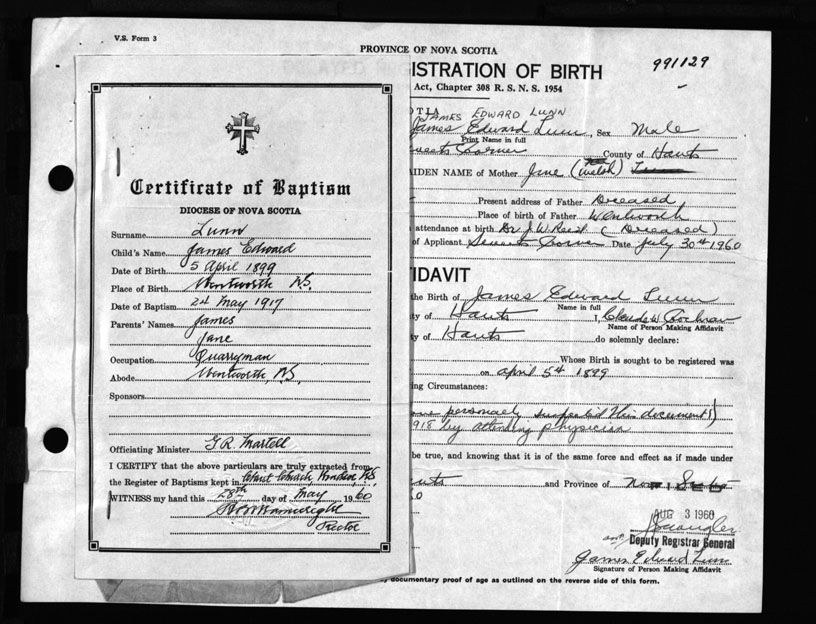 V.S. Form 3
PROVINCE OF NOVA SCOTIA
991129
ISTRATION OF BIRTH
Act, Chapter 308 R. S. N. S. 1954
OTIA
JAMES EDWARD LUNN
James Edward Lunn, Sex Male
Print Name in full
Corner County of Hants
AIDEN NAME of Mother Jane (Welsh) Lunn
Present address of Father Deceased
Place of birth of Father Wentworth
attendance at birth Dr. J. W. Reid (Deceased)
of Applicant Corner Date July 30th 1960
FIDAVIT
the Birth of James Edward Lunn
Name in full
ty of Hants I, Claude W Cochran
Name of Person Making Affidavit
ty of Hants do solemnly declare:
Whose Birth is sought to be registered was
on April 5th 1899
ing Circumstances:
personally this document
1918 by attending physician
be true, and knowing that is of the same force and effect as if made under
ants and Province of Nova
FILED
AUG 3 1960
Deputy Registrar General
James Edward Lunn
Signature of Person Making Affidavit
documentary proof of age as outlined on the reverse side of this form.
Certificate of Baptism
DIOCESE OF NOVA SCOTIA
Surname Lunn
Child's Name James Edward
Date of Birth 5 April 1899
Place of Birth Wentworth N.S.
Date of Baptism 24 May 1917
Parents' Names James
Jane
Occupation Quarryman
Abode Wentworth, N.S.
Sponsors
Officiating Minister G R Martell
I CERTIFY that the above particulars are truly extracted from
the Register of Baptisms kept in Christ Church Windsor, N.S.
WITNESS my hand this 28th day of May 1960
Rector